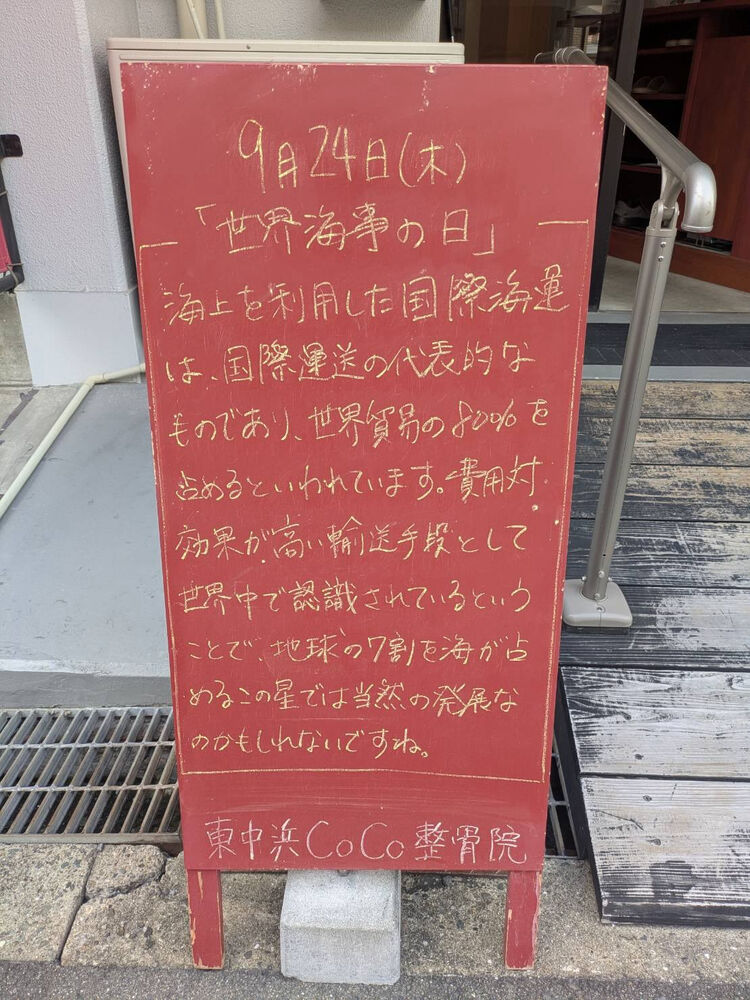 9月24日(木)
「世界海事の日」
海上を利用した国際海運
は、国際運送の代表的な
ものであり、世界貿易の80%を
占めるといわれています。費用対
効果が高い輸送手段として
世界中で認識されているという
ことで、地球の7割を海が占
めるこの星では当然の発展な
のかもしれないですね。
東中浜CoCo整骨院